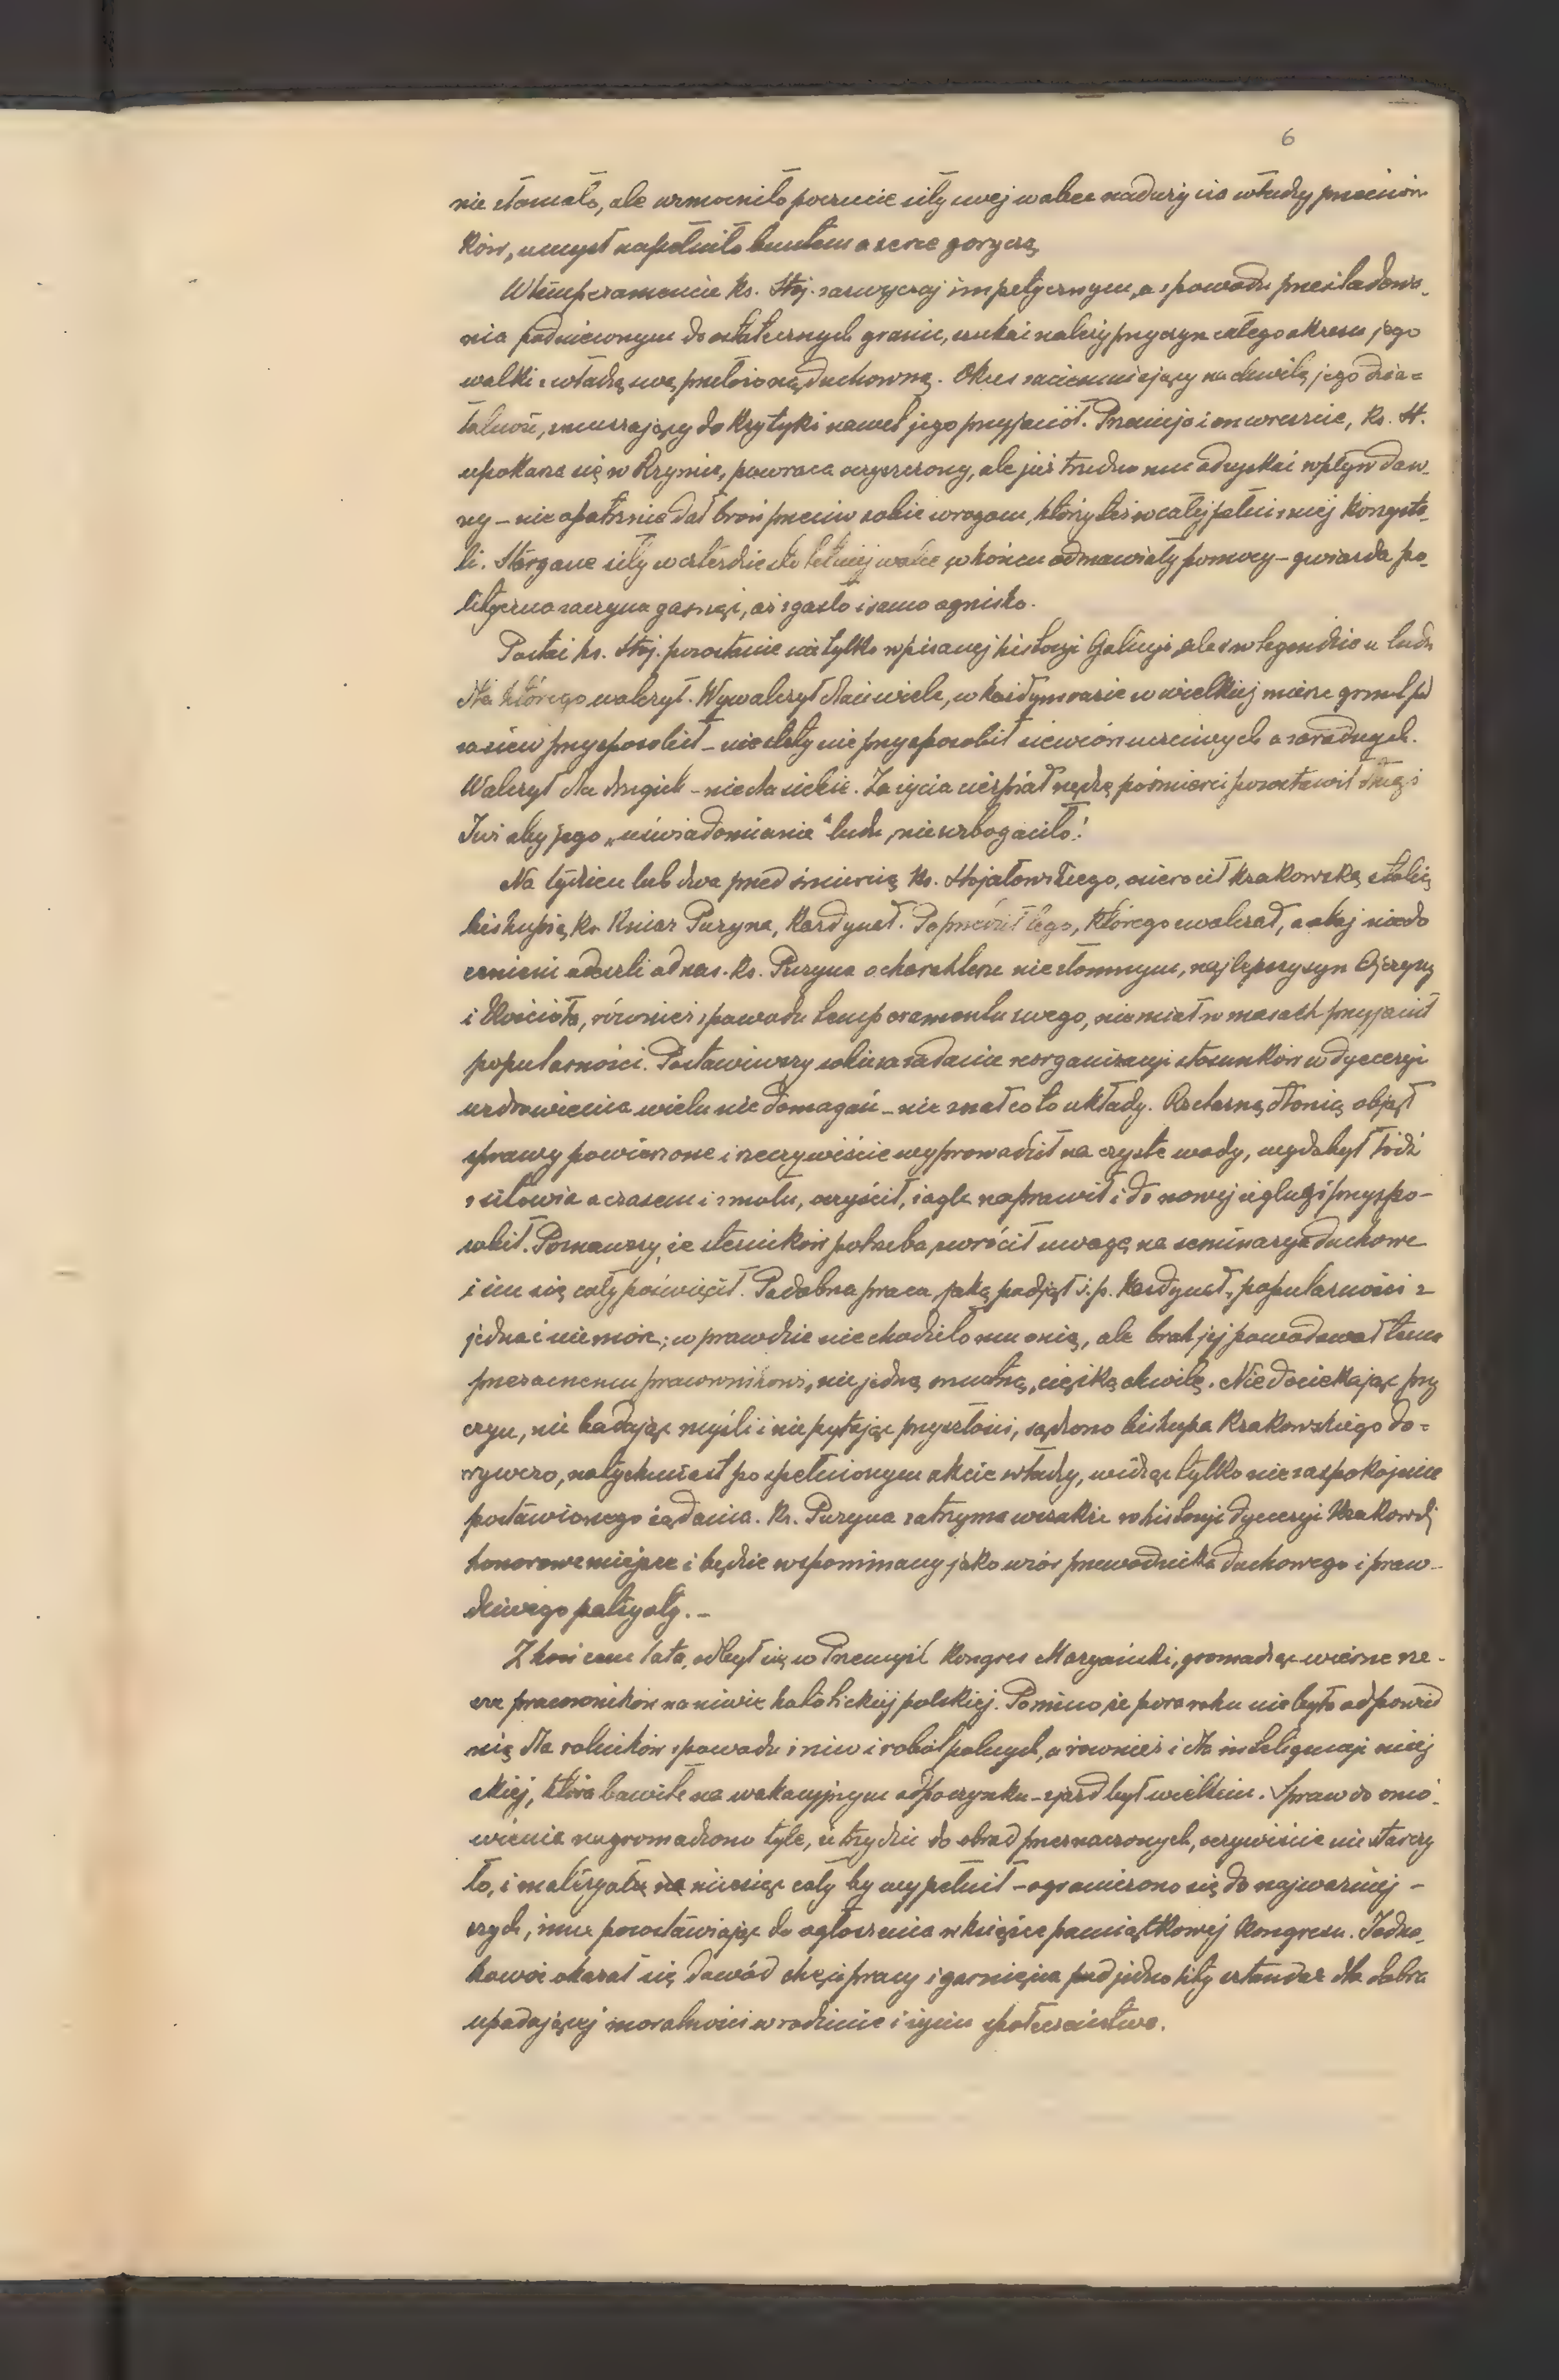 6
nie złamało, ale wzmocniło poczucie siły swej wobec nadużycia władzy przeciwni-
ków, umysł napełniło buntem a serce goryczą
W temperamencie ks. Stoj. zazwyczaj impetycznym, a z powodu prześladowa-
nia podnieconym do ostatecznych granic, szukać należy przyczyn całego okresu jego
walki z władzą swą przełożoną duchowną. Okres zaciemniający na chwilę jego dzia=
łalność, zmuszający do krytyki nawet jego przyjaciół. Przemija i on wreszcie, ks. St.
upokarza się w Rzymie, powraca oczyszczony, ale już trudno mu odzyskać wpływ daw-
ny – nieopatrznie dał broń przeciw sobie wrogom, którzy też w całej pełni z niej korzysta-
li. Stergane siły w czterdziesto letniej walce w końcu odmawiały pomocy – gwiazda po-
lityczna zaczyna gasnąć, aż zgasło i samo ognisko.
Postać ks. Stoj. pozostanie nie tylko w pisanej historyi Galicyi, ale i w legendzie u ludu
dla którego walczył. Wywalczył dlań wiele, w każdym razie w wielkiej mierze grunt pod
zasiew przysposobił – niestety nie przysposobił siewców uczciwych a zaradnych.
Walczył dla drugich – nie dla siebie. Za życia cierpiał nędzę, po śmierci pozostawił długi
Już aby jego „uświadomianie" ludu, nie wzbogaciło!
Na tydzień lub dwa przed śmiercią ks. Stojałowskiego, osierocił krakowską stolicę
biskupią ks. Kniaź Puzyna, kardynał. Poprzedził tego, którego zwalczał, a obaj niedo
cenieni odeszli od nas. Ks. Puzyna o charakterze niezłomnym, najlepszy syn Ojczyzny
i Kościoła, również z powodu temperamentu swego, nie miał w masach przyjaciół
popularności. Postawiwszy sobie za zadanie reorganizacyi stosunków w dyecezyi
uzdrowienia wielu niedomagań – nie znał co to układy. Rzetelną dłonią objął
sprawy powierzone i rzeczywiście wyprowadził na czyste wody, wydobył łódź
z sitowia a czasem i z mułu, oczyścił, żagle naprawił i do nowej żeglugi przyspo-
sobił. Poznawszy, że sterników potrzeba, zwrócił uwagę na seminarya duchowe
i im się cały poświęcił. Podobna praca, jaką podjął ś. p. kardynał, popularności z
jednać nie może; wprawdzie nie chodziło mu o nią, ale brak jej powodował temu
przezacnemu pracownikowi, nie jedną smutną, ciężką chwilę. Nie dociekając przy
czyn, nie badając myśli i nie pytając przyszłości, sądzono biskupa Krakowskiego do=
rywczo, natychmiast po spełnionym akcie władzy, widząc tylko niezaspokojenie
postawionego żądania. Ks. Puzyna zatrzyma wszakże w historyi dyecezyi Krakowskiej
honorowe miejsce i będzie wspominany jako wzór przewodnika duchowego i praw-
dziwego patryoty. –
Z końcem lata, odbył się w Przemyśl kongres Maryański, gromadząc wierne rze-
sze pracowników na niwie katolickiej polskiej. Pomimo, że pora roku nie była odpowied
nią dla rolników z powodu żniw i robót polnych, a również i dla inteligencyi miej
skiej, która bawiła na wakacyjnym odpoczynku – zjazd był wielkim. Spraw do omó-
wienia nagromadzono tyle, iż trzy dni do obrad przeznaczonych, oczywiście nie starczy
ło, i materyału na miesiąc cały by wypełnił – ograniczono się do najważniej –
szych, inne pozostawiając do ogłoszenia w książce pamiątkowej kongresu. Jedna-
kowoż okazał się dowód chęci pracy i garnięcia pod jednolity sztandar dla dobra
upadającej moralności w rodzinie i życiu społeczeństwa.